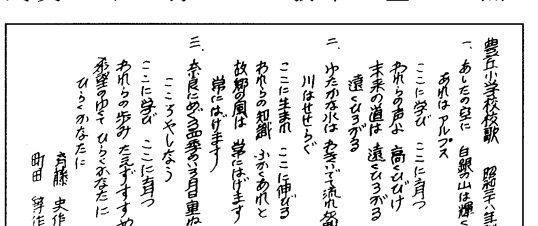 豊丘小学校校歌 昭和二十八年
一、あしたの空に 白銀の山は輝く
あれは アルプス
ここに学び ここに育つ
われらの声よ 高くひびけ
未来の道は 遠くひろがる
遠くひろがる
二、ゆたかな水は わきいでて流れ
川はせせらぐ
ここに生まれ ここに伸びる
われらの知識 ふかくあれと
故郷の風は 常にはげます
常にはげます
三、奈良にめぐる四季の 月日重ね
こころやしなう
ここに学び ここに育つ
われらの歩み たえずすすめ
希望のゆくて ひらくかなたに
ひらくかなたに
斉藤 史 作
町田 等 作